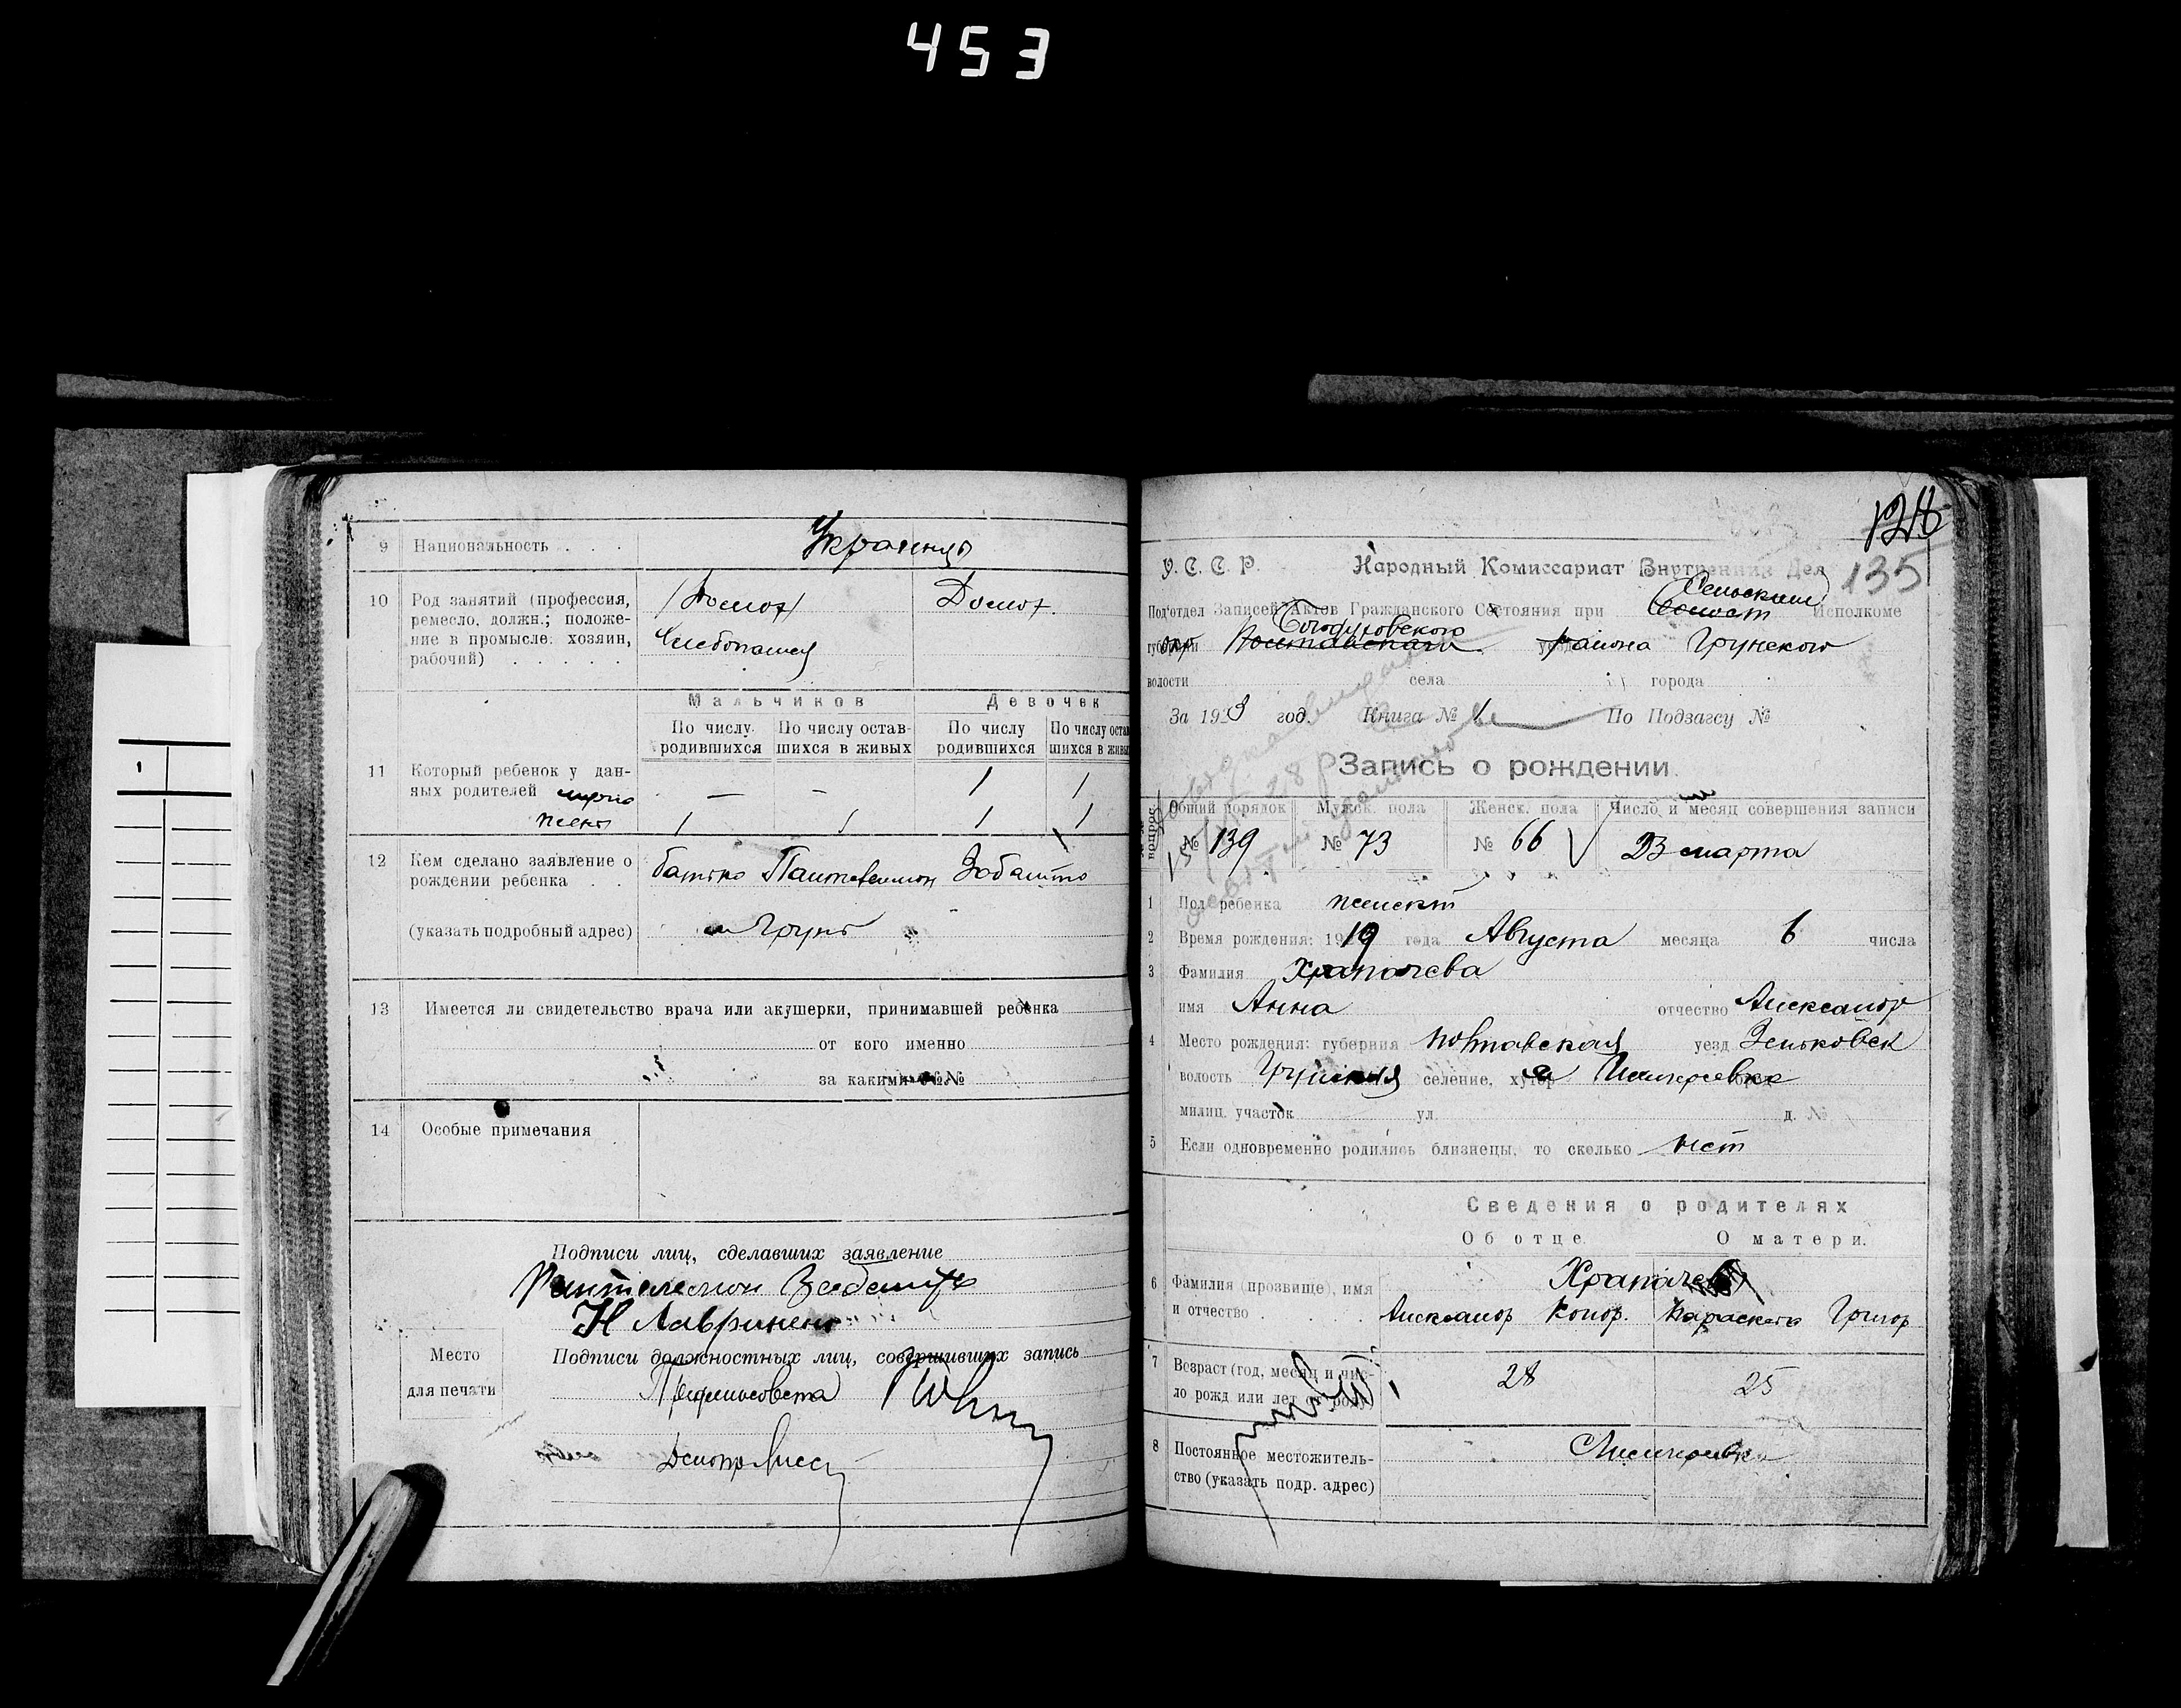 453
9 Национальность . . . Украинць
10 Род занятий (профессия, ремесло, должн.; положение в промысле: хозяин, рабочий) . . . . .
Домох.
Хлебопашец
Мальчиков Девочек
По числу родившихся По числу оставшихся в живых По числу родившихся По числу оста шихся в живы
11 Который ребенок у данных родителей
— – 1 1
1 1 1 1
12 Кем сделано заявление о рождении ребенка . .
батько Пантелемон
(указать подробный адрес) м Грунь
13 Имеется ли свидетельство врача или акушерки, принимавшей ребенка
от кого именно
за какими №№
14 Особые примечания
Подписи лиц, сделавших заявление
Пантелемон
Н Лавринен
Подписи должностных лиц, совершивших запись
Место для печати
128
135
У. С. С. Р. Народный Комиссариат Внутренних Дел
Сельским
Под'отдел Записей Актов Гражданского Состояния при Исполкоме
Богодуховского
губернии окр Полтавского уезда района Грунского
волости села города
За 1923 год. Книга № 1 По Подзагсу №
Запись о рождении.
№№ вопрос.
Общий порядок Мужск. пола Женск. пола Число и месяц совершения записи
№ 139 № 73 № 66 23 марта
1 Пол ребенка женск
2 Время рождения: 1919 года Августа месяца 6 числа
3 Фамилия Храпачева
имя Анна отчество Александр
4 Место рождения: губерния Полтавская уезд Зеньковск
волость Грунская селение, хутор
милиц. участок ул. д. №
5 Если одновременно родились близнецы, то сколько нет
Сведения о родителях
Об отце. О матери.
6 Фамилия (прозвище), имя и отчество . . . .
Храпачев
Александр Кондр. Параскева Григор
7 Возраст (год, месяц и число рожд. или лет от роду)
28 25
8 Постоянное местожительство (указать подр. адрес)